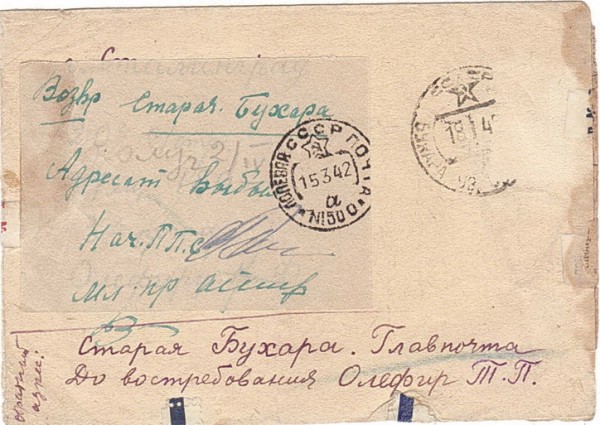 Сталинград
Возвр Старая. Бухара
Адресат выбыл
Нач. ППС
Мл.
ПОЛЕВАЯ СССР ПОЧТА
15.3.42
а
N150
БУХАРА УЗ
18.1.4
обратный
адрес:
Старая Бухара. Главпочта
До востребования Олефир Т.П.